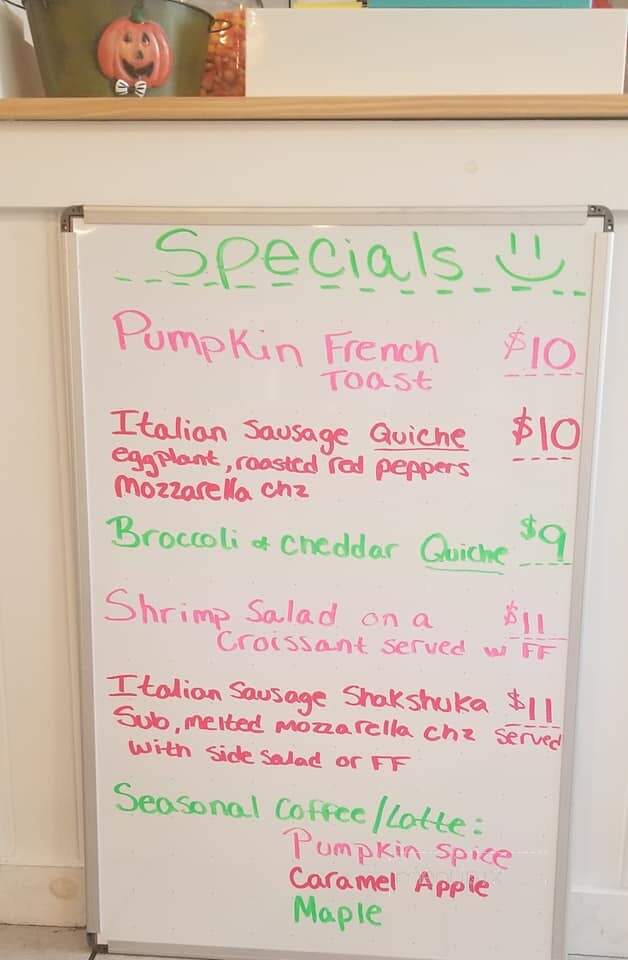 Specials
Pumpkin French $10
Toast
Italian Sausage Quiche $10
eggplant, roasted red peppers
Mozzarella chz
Broccoli & cheddar Quiche $9
Shrimp Salad on a $11
Croissant served w/ FF
Italian Sausage Shakshuka $11
Sub, melted mozzarella chz served
with side salad or FF
Seasonal Coffee/Latte:
Pumpkin Spice
Caramel Apple
Maple